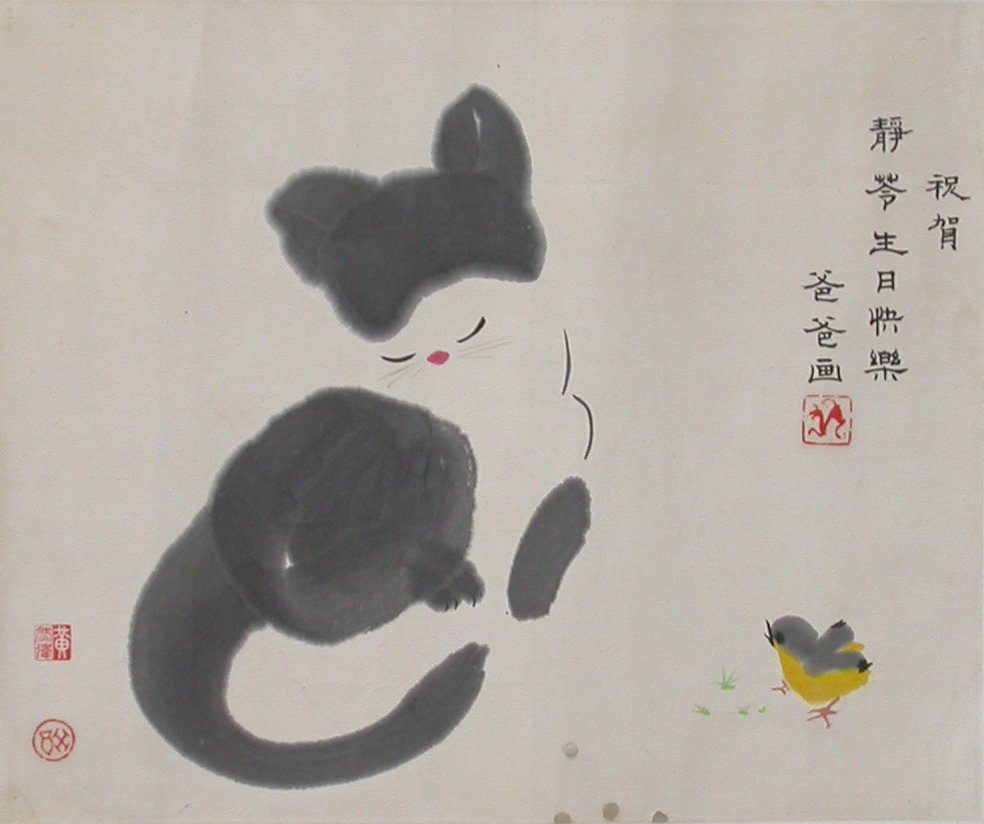 祝賀
靜苓生日快樂
爸爸画
黃